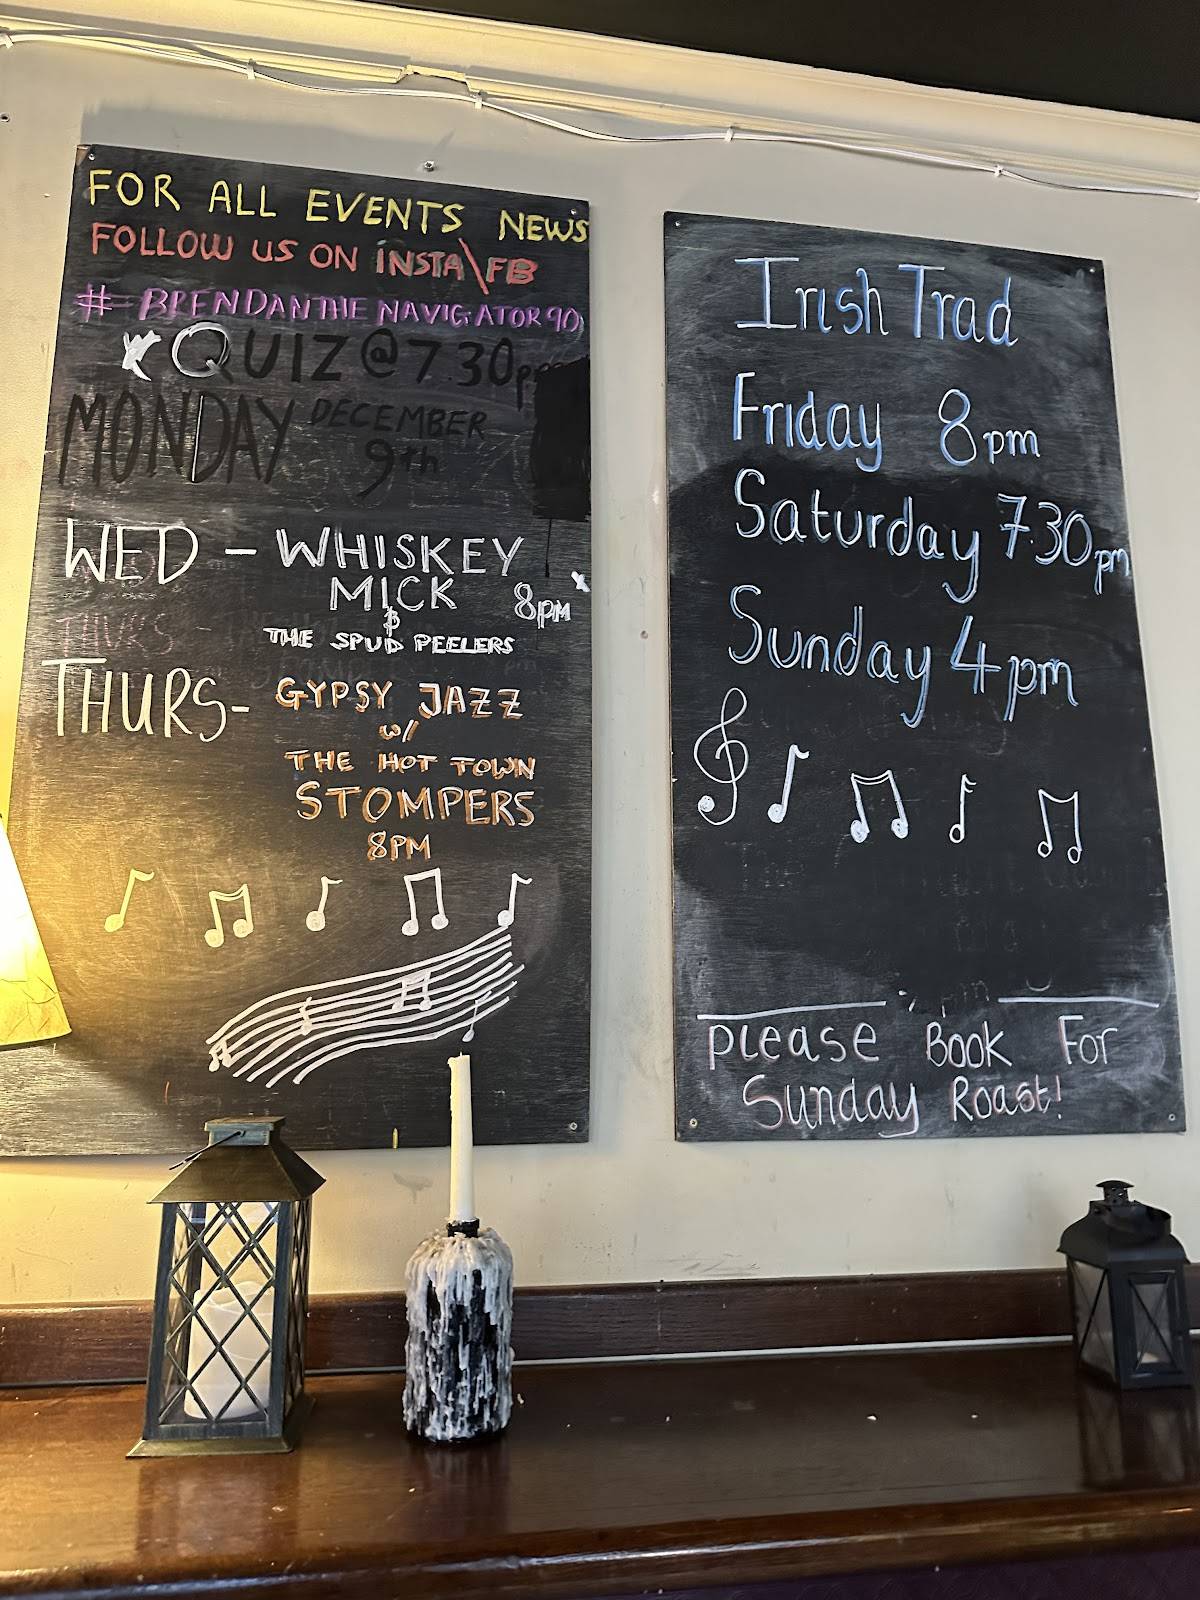 FOR ALL EVENTS NEWS
FOLLOW US ON INSTA\FB
# BRENDANTHE NAVIGATOR90
QUIZ @ 7.30pm
MONDAY DECEMBER
9th
WED - WHISKEY
MICK 8PM
&
THE SPUD PEELERS
THURS -
THURS- GYPSY JAZZ
w/
THE HOT TOWN
STOMPERS
8PM
Irish Trad
Friday 8pm
Saturday 7.30pm
Sunday 4pm
Please Book For
Sunday Roast!